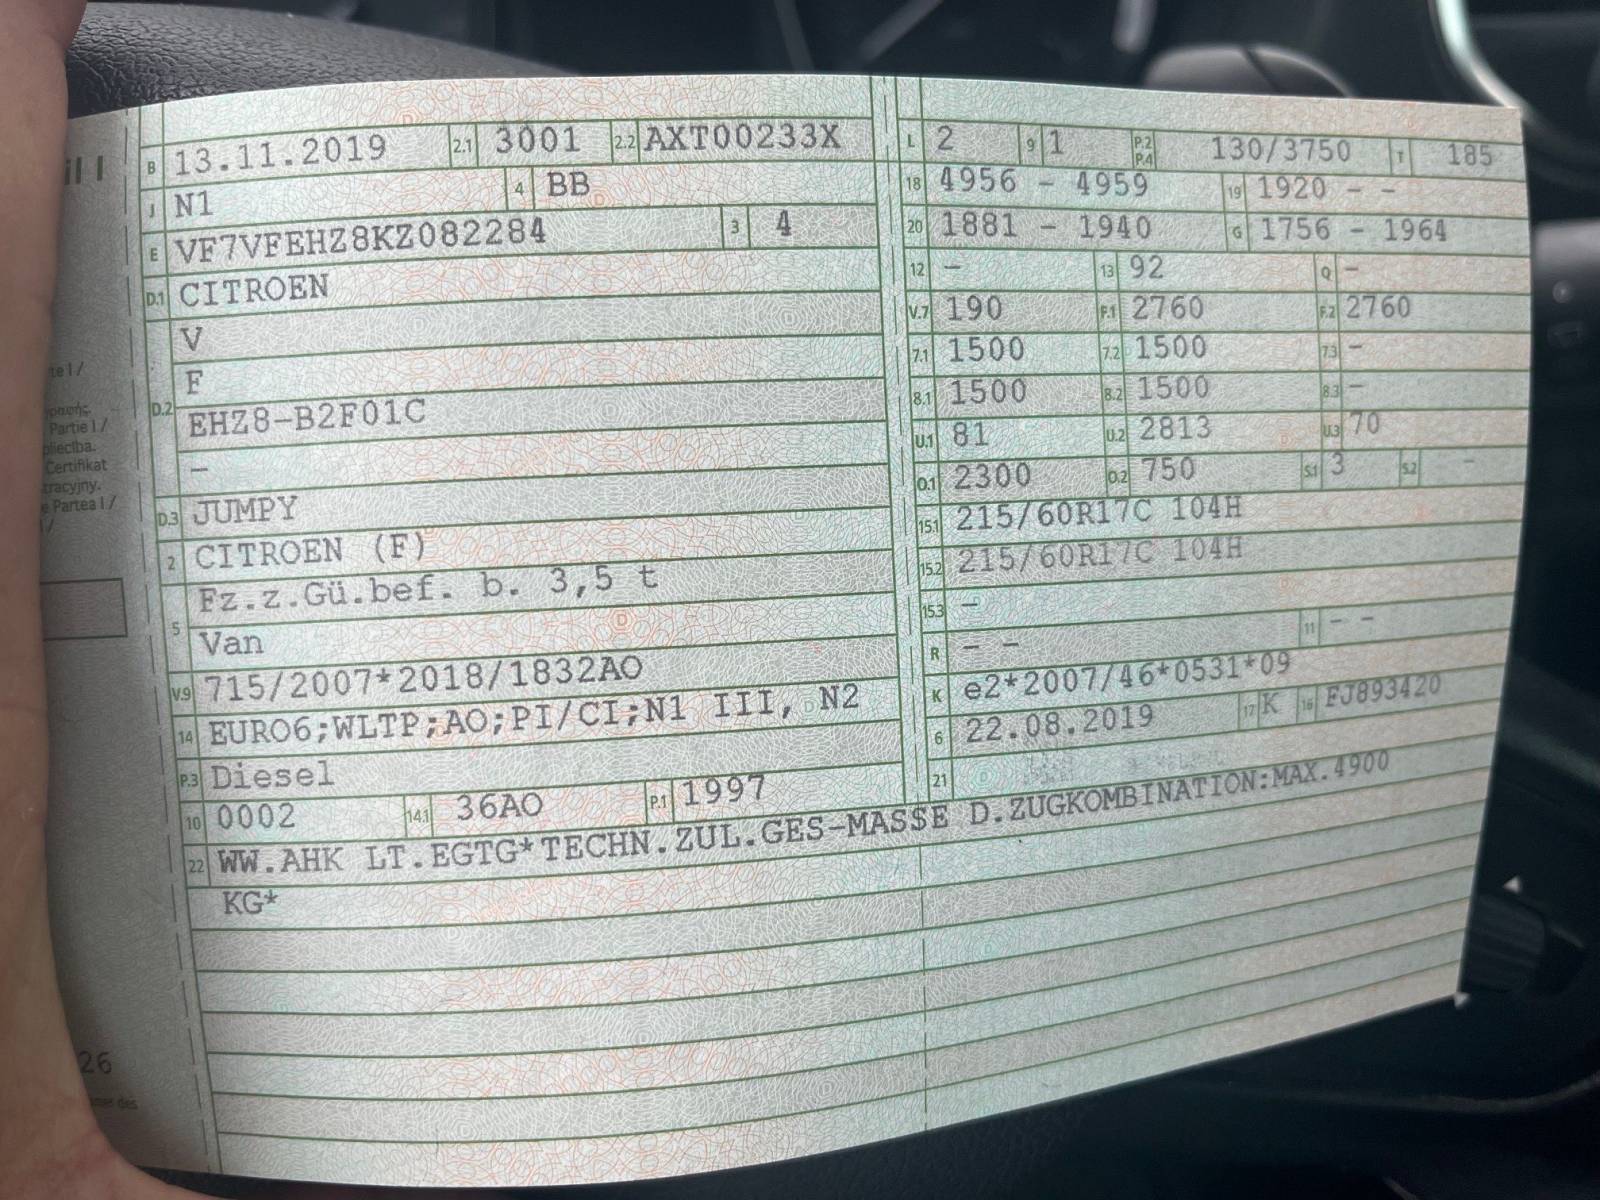 il I
B 13.11.2019 2.1 3001 2.2 AXT00233X
J N1 4 BB
E VF7VFEHZ8KZ082284 3 4
D.1 CITROEN
V
F
D.2 EHZ8-B2F01C
–
D.3 JUMPY
2 CITROEN (F)
Fz.z.Gü.bef. b. 3,5 t
5 Van
V.9 715/2007*2018/1832AO
14 EURO6;WLTP;AO;PI/CI;N1 III, N2
P.3 Diesel
10 0002 14.1 36AO P.1 1997
L 2 9 1 P.2 P.4 130/3750 T 185
18 4956 – 4959 19 1920 – –
20 1881 – 1940 G 1756 – 1964
12 – 13 92 Q –
V.7 190 F.1 2760 F.2 2760
7.1 1500 7.2 1500 7.3 –
8.1 1500 8.2 1500 8.3 –
U.1 81 U.2 2813 U.3 70
O.1 2300 O.2 750 S.1 3 S.2 –
15.1 215/60R17C 104H
15.2 215/60R17C 104H
15.3 –
R – – 11 – –
K e2*2007/46*0531*09
6 22.08.2019 17 K 16 FJ893420
21
22 WW.AHK LT.EGTG*TECHN.ZUL.GES-MASSE D.ZUGKOMBINATION:MAX.4900
KG*
te I /
Partie I /
Certifikat
e Partea I /
26